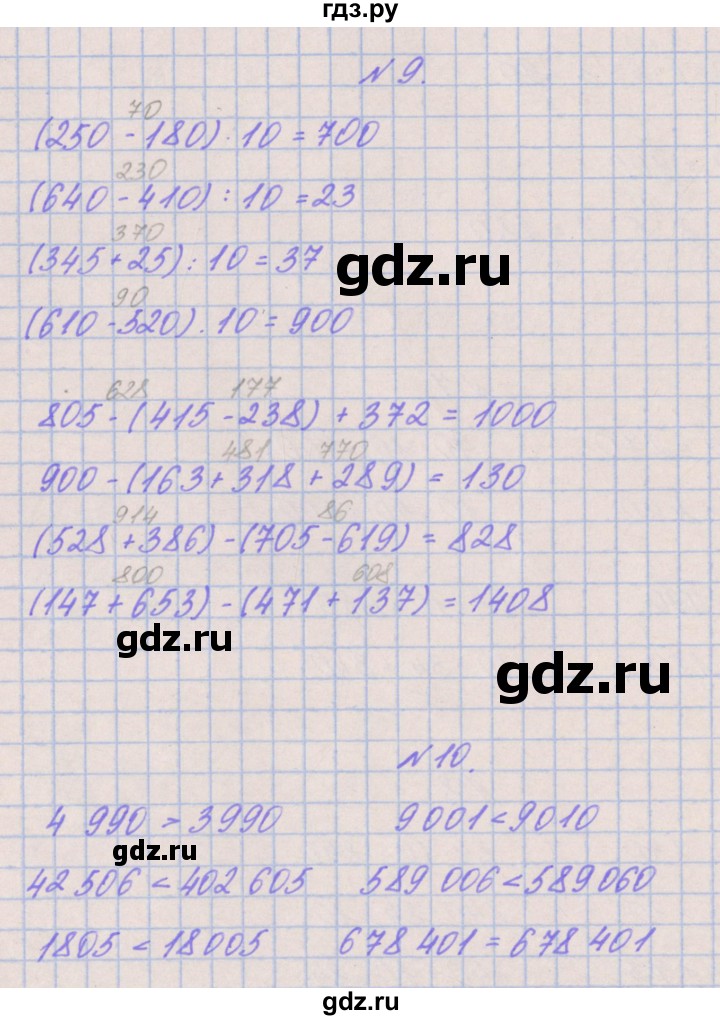 гдз.ру
N 9.
70
(250 - 180) · 10 = 700
230
(640 - 410) : 10 = 23
370
(345 + 25) : 10 = 37
gdz.ru
90
(610 - 520) · 10 = 900
628 177
805 - (415 - 238) + 372 = 1000
481 770
900 - (163 + 318 + 289) = 130
914 86
(528 + 386) - (705 - 619) = 828
800 608
(147 + 653) - (471 + 137) = 1408
gdz.ru
gdz.ru
N 10.
4 990 > 3990 9001 < 9010
gdz.ru
42 506 < 402 605 589 006 < 589 060
1805 < 18005 678 401 = 678 401
gdz.ru